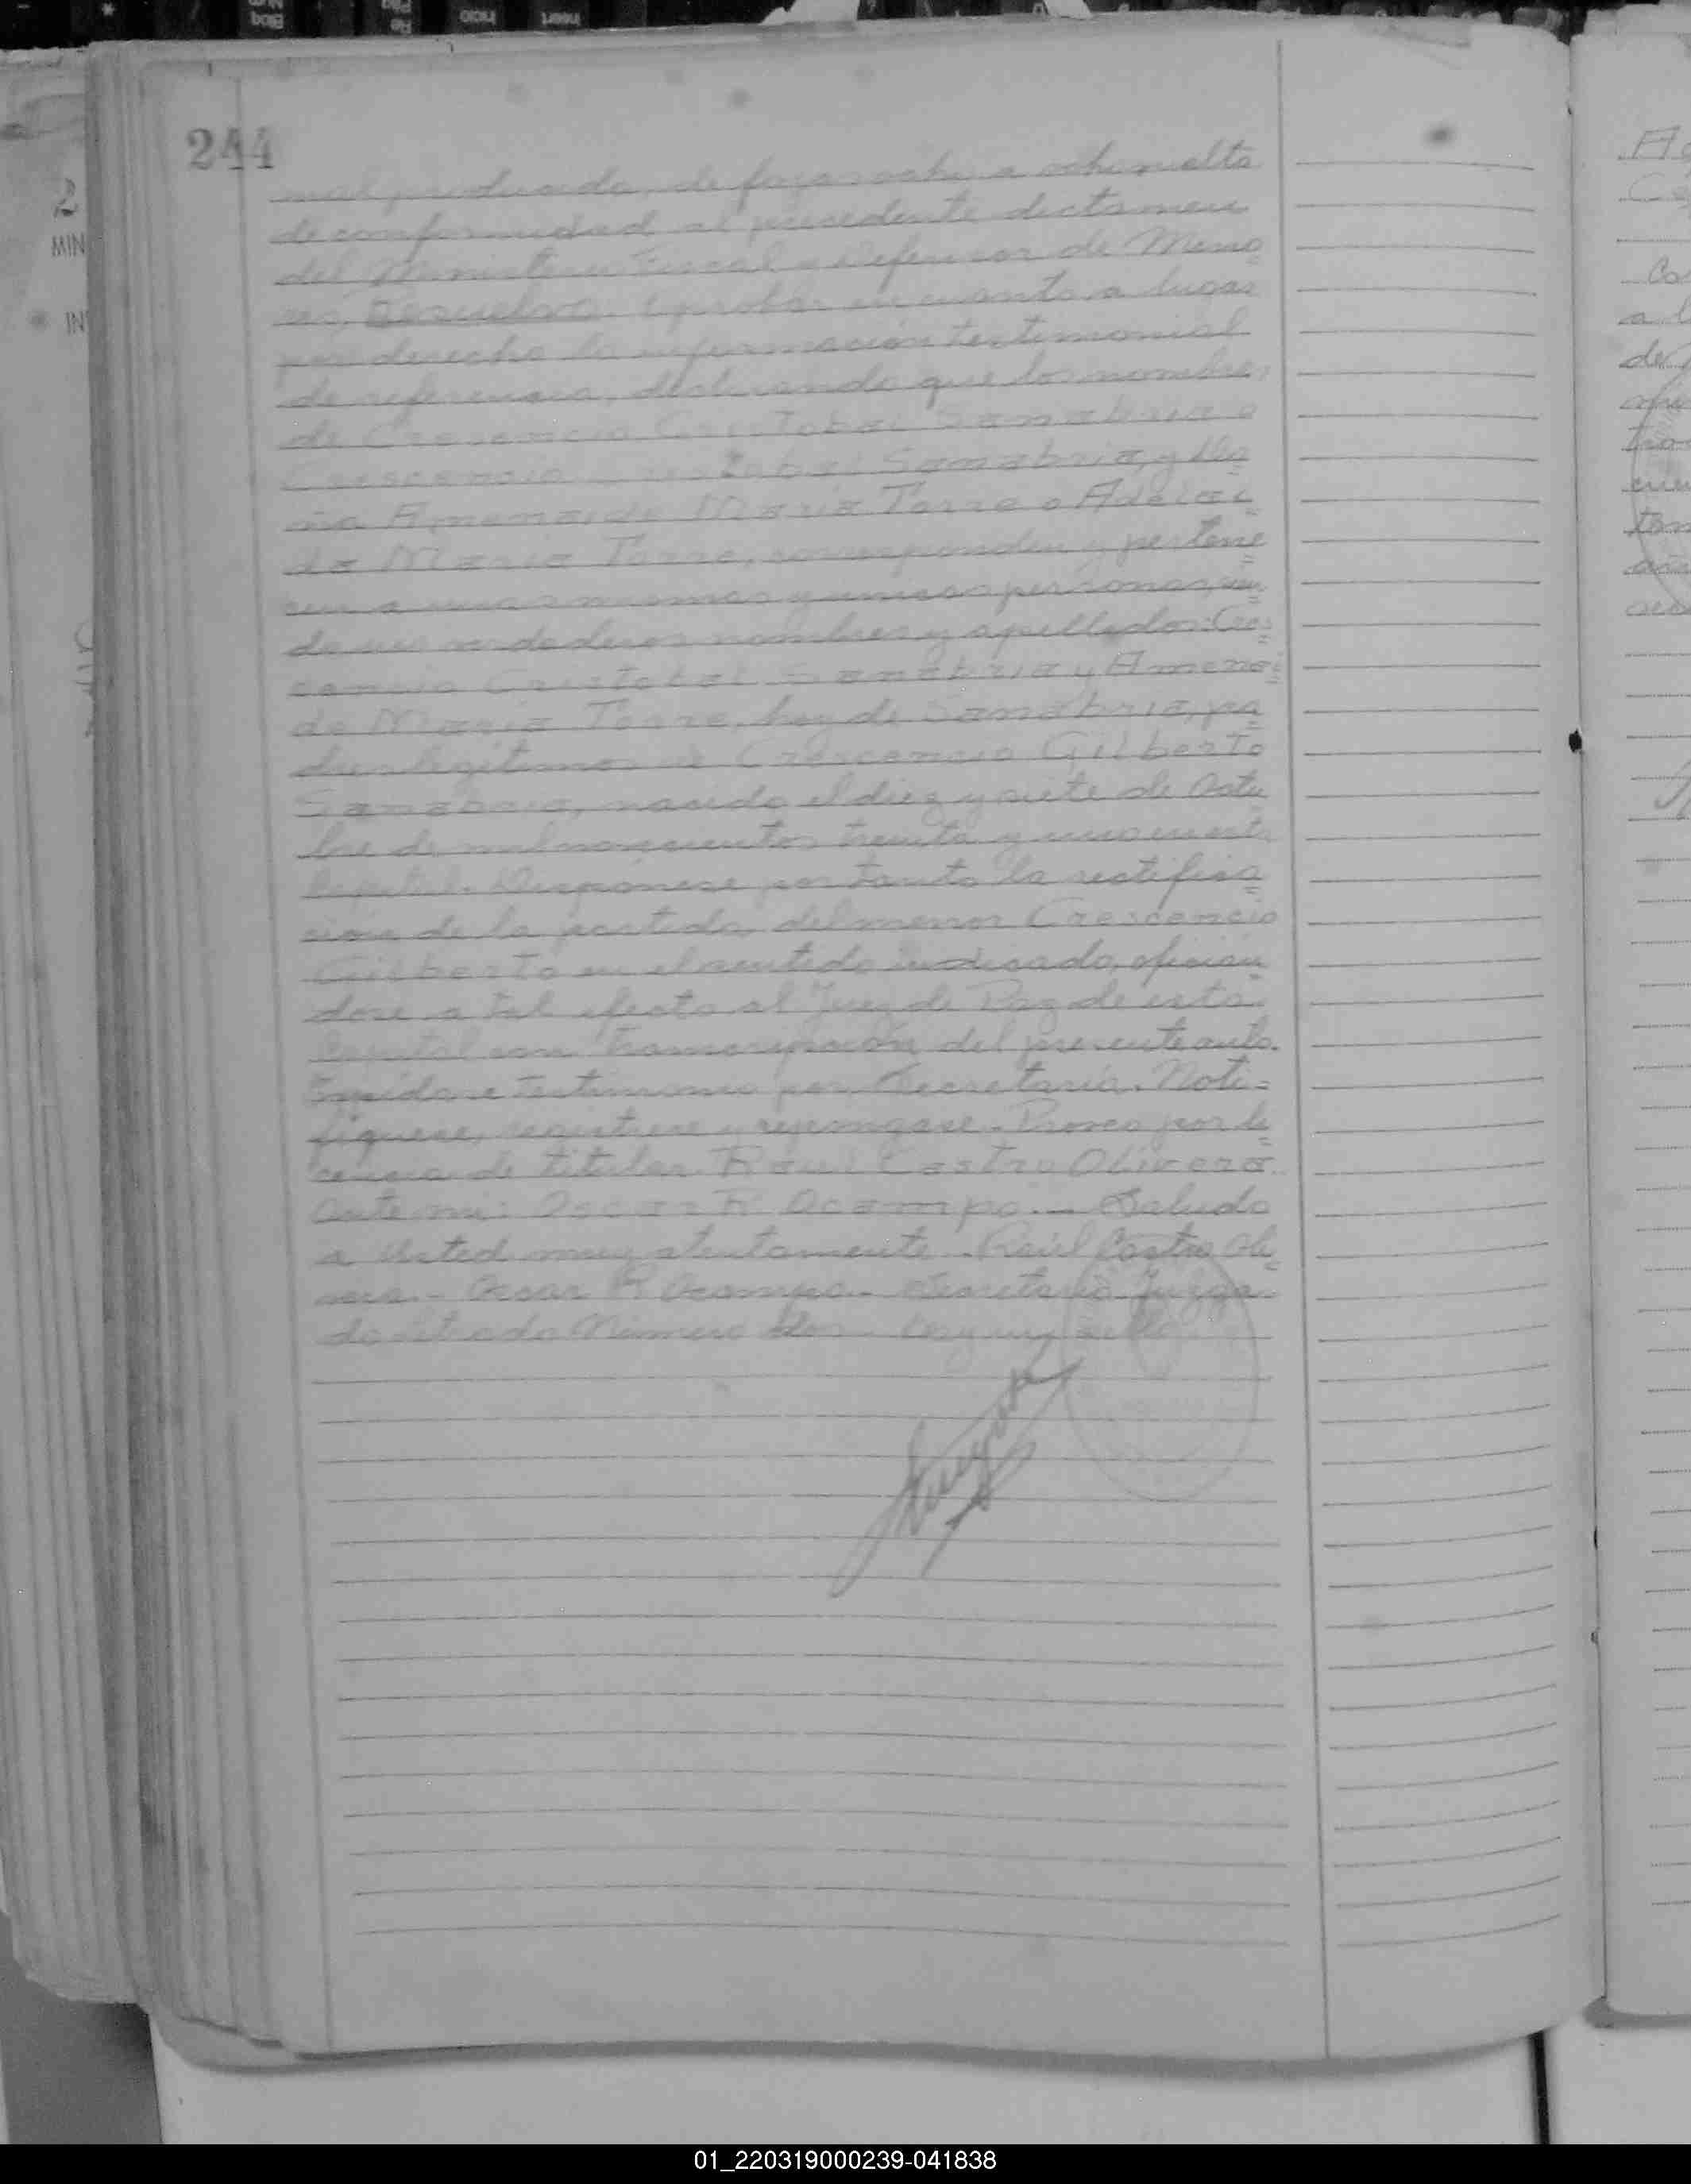 244
nal producida, de fojas ocho a ocho vuelta
de conformidad al precedente dictamen
del Ministerio Fiscal y Defensor de Meno=
res, Resuelvo: Aprobar en cuanto a lugar
por derecho la información testimonial
de referencia, declarando que los nombres
de Crescencio Cristobal Sanabria o
Crescencio Cristobal Sanabria, y
Amenaide Maria Torre o Adelai=
da Maria Torre, corresponden y pertene=
cen a unas mismas y unicas personas, sien=
do sus verdaderos nombres y apellidos: Cres=
cencio Cristobal Sanabria y Amenai=
de Maria Torre, hoy de Sanabria, pa=
dres legitimos de Crescencio Gilberto
Sanabria, nacido el diez y siete de Octu=
bre de mil novecientos treinta y uno en esta
Capital. Dispónese por tanto la rectifica=
ción de la partida del menor Crescencio
Gilberto en el sentido indicado, oficián=
dose a tal efecto al Juez de Paz de esta
Capital con transcripción del presente auto.
Expídase testimonio por Secretaría. Noti=
fíquese, regístrese y repongase. Proveo por li=
cencia de titular. Raul Castro Olivera.
Ante mi: Oscar R. Ocampo. – Saludo
a Usted muy atentamente. Raúl Castro Oli=
vera. – Oscar R. Ocampo. – Secretario Juzga=
do Letrado Número Dos. Hay un sello.
2
MIN
IN
A
Ce
Co
a l
de
tra
cu
ton
01_220319000239-041838